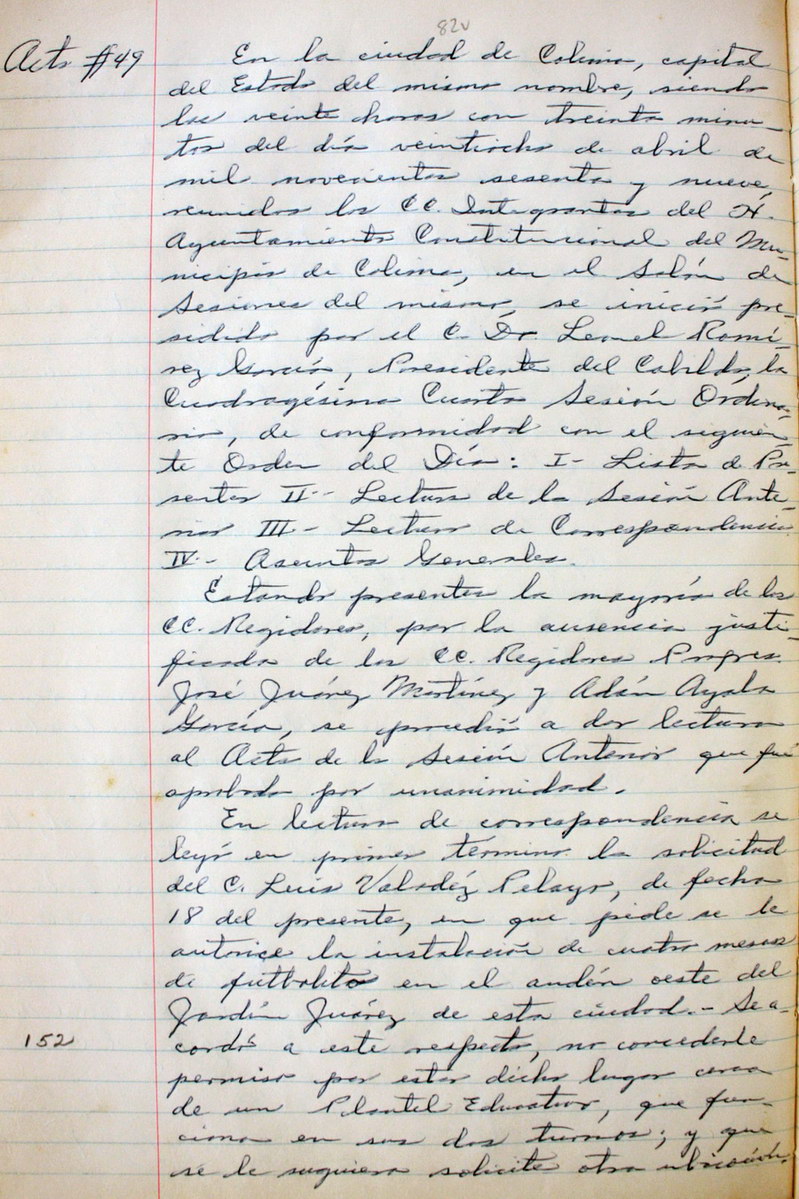 82v
Acta #49
En la ciudad de Colima, capital
del Estado del mismo nombre, siendo
las veinte horas con treinta minu-
tos del día veintiocho de abril de
mil novecientos sesenta y nueve,
reunidos los CC. Integrantes del H.
Ayuntamiento Constitucional del Mu-
nicipio de Colima, en el Salón de
Sesiones del mismo, se inició pre-
sidida por el C. Dr. Leonel Ramí-
rez García, Presidente del Cabildo, la
Cuadragésima Cuarta Sesión Ordina-
ria, de conformidad con el siguien-
te Orden del Día: I- Lista de Pre-
sentes II- Lectura de la Sesión Ante-
rior III- Lectura de Correspondencia
IV- Asuntos Generales.
Estando presentes la mayoría de los
CC. Regidores, por la ausencia justi-
ficada de los CC. Regidores Profres.
José Juárez Martínez y Adán Ayala
García, se procedió a dar lectura
al Acta de la Sesión Anterior que fué
aprobada por unanimidad.
En lectura de correspondencia se
leyó en primer término la solicitud
del C. Luis Valadéz Pelayo, de fecha
18 del presente, en que pide se le
autorice la instalación de cuatro mesas
de futbolito en el andén oeste del
Jardín Juárez de esta ciudad.- Se a-
152
cordó a este respecto, no concederle
permiso por estar dicho lugar cerca
de un Plantel Educativo, que fun-
ciona en sus dos turnos; y que
se le sugiera solicite otra ubicación.